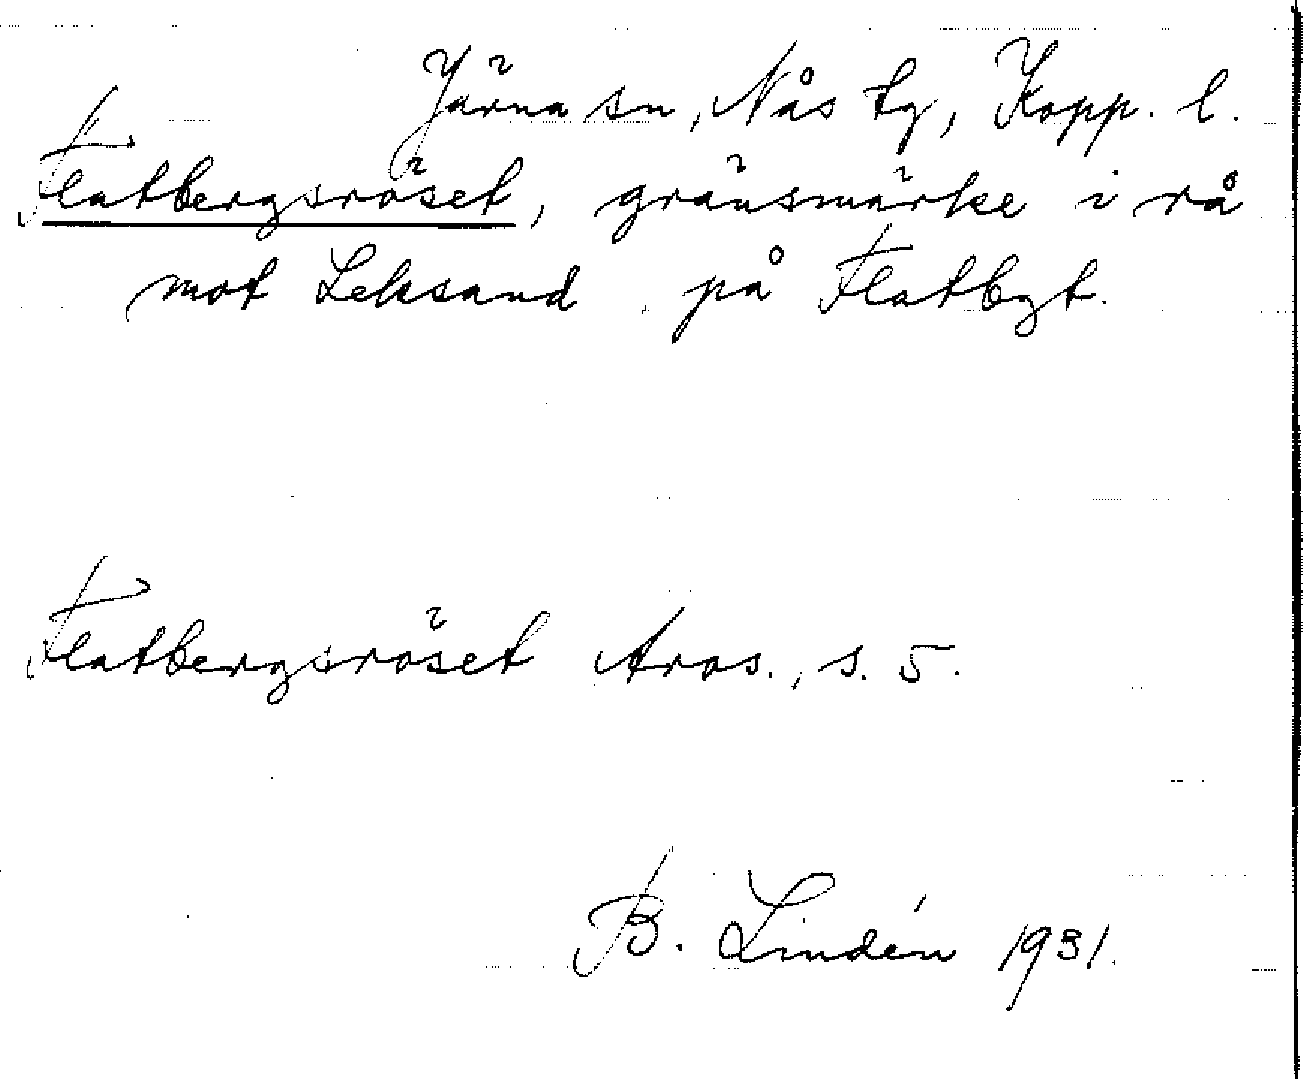 Järna sn, Nås tg, Kopp. l.
Flatbergsröset, gränsmärke i rå
mot Leksand på Flatbgt.
Flatbergsröset Aros., s. 5.
B. Lindén 1931.